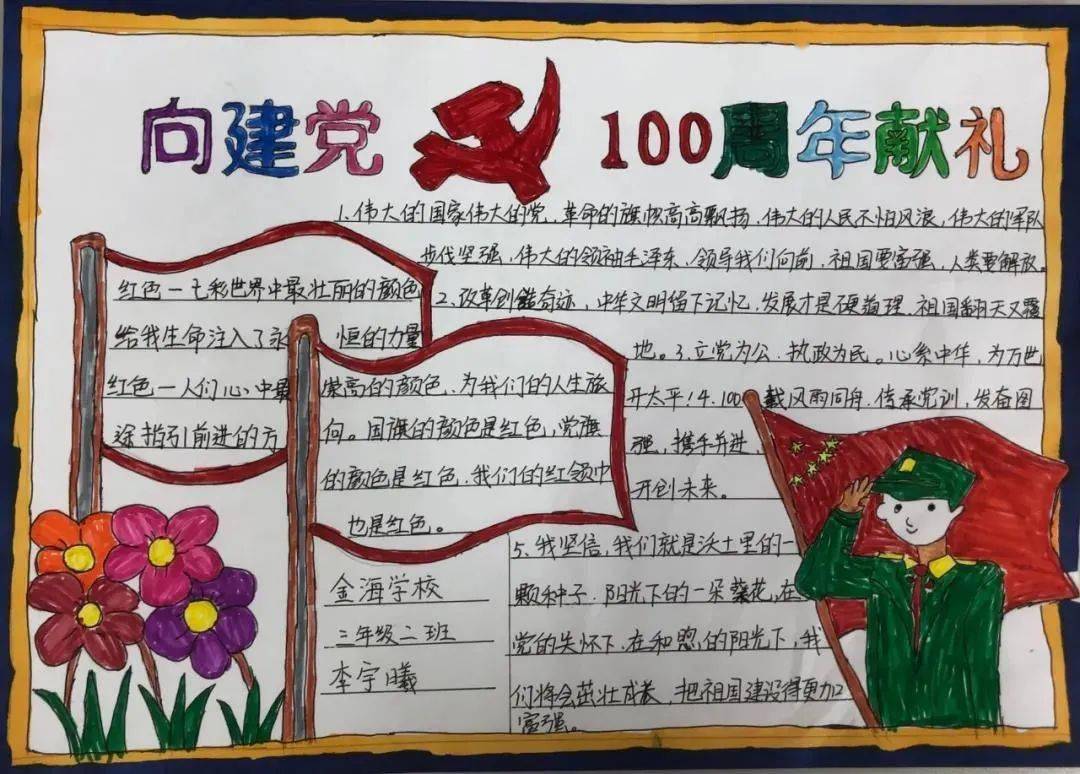 向建党 100周年献礼
1、伟大的国家伟大的党，革命的旗帜高高飘扬，伟大的人民不怕风浪，伟大的军队
步伐坚强，伟大的领袖毛泽东、领导我们向前，祖国要富强，人类要解放。
2、改革创造奇迹，中华文明留下记忆，发展才是硬道理，祖国翻天又覆
地。3、立党为公、执政为民。心系中华，为万世
开太平！4、100 载风雨同舟、传承党训，发奋图
强，携手并进，
开创未来。
红色一七彩世界中最壮丽的颜色
给我生命注入了永 恒的力量
红色一人们心中最
途指引前进的方
崇高的颜色、为我们的人生旅
向。国旗的颜色是红色，党旗
的颜色是红色、我们的红领巾
也是红色。
5、我坚信，我们就是沃土里的一
颗种子、阳光下的一朵葵花，在
党的关怀下、在和煦的阳光下，我
们将会茁壮成长，把祖国建设得更加
富强。
金海学校
三年级二班
李宇曦